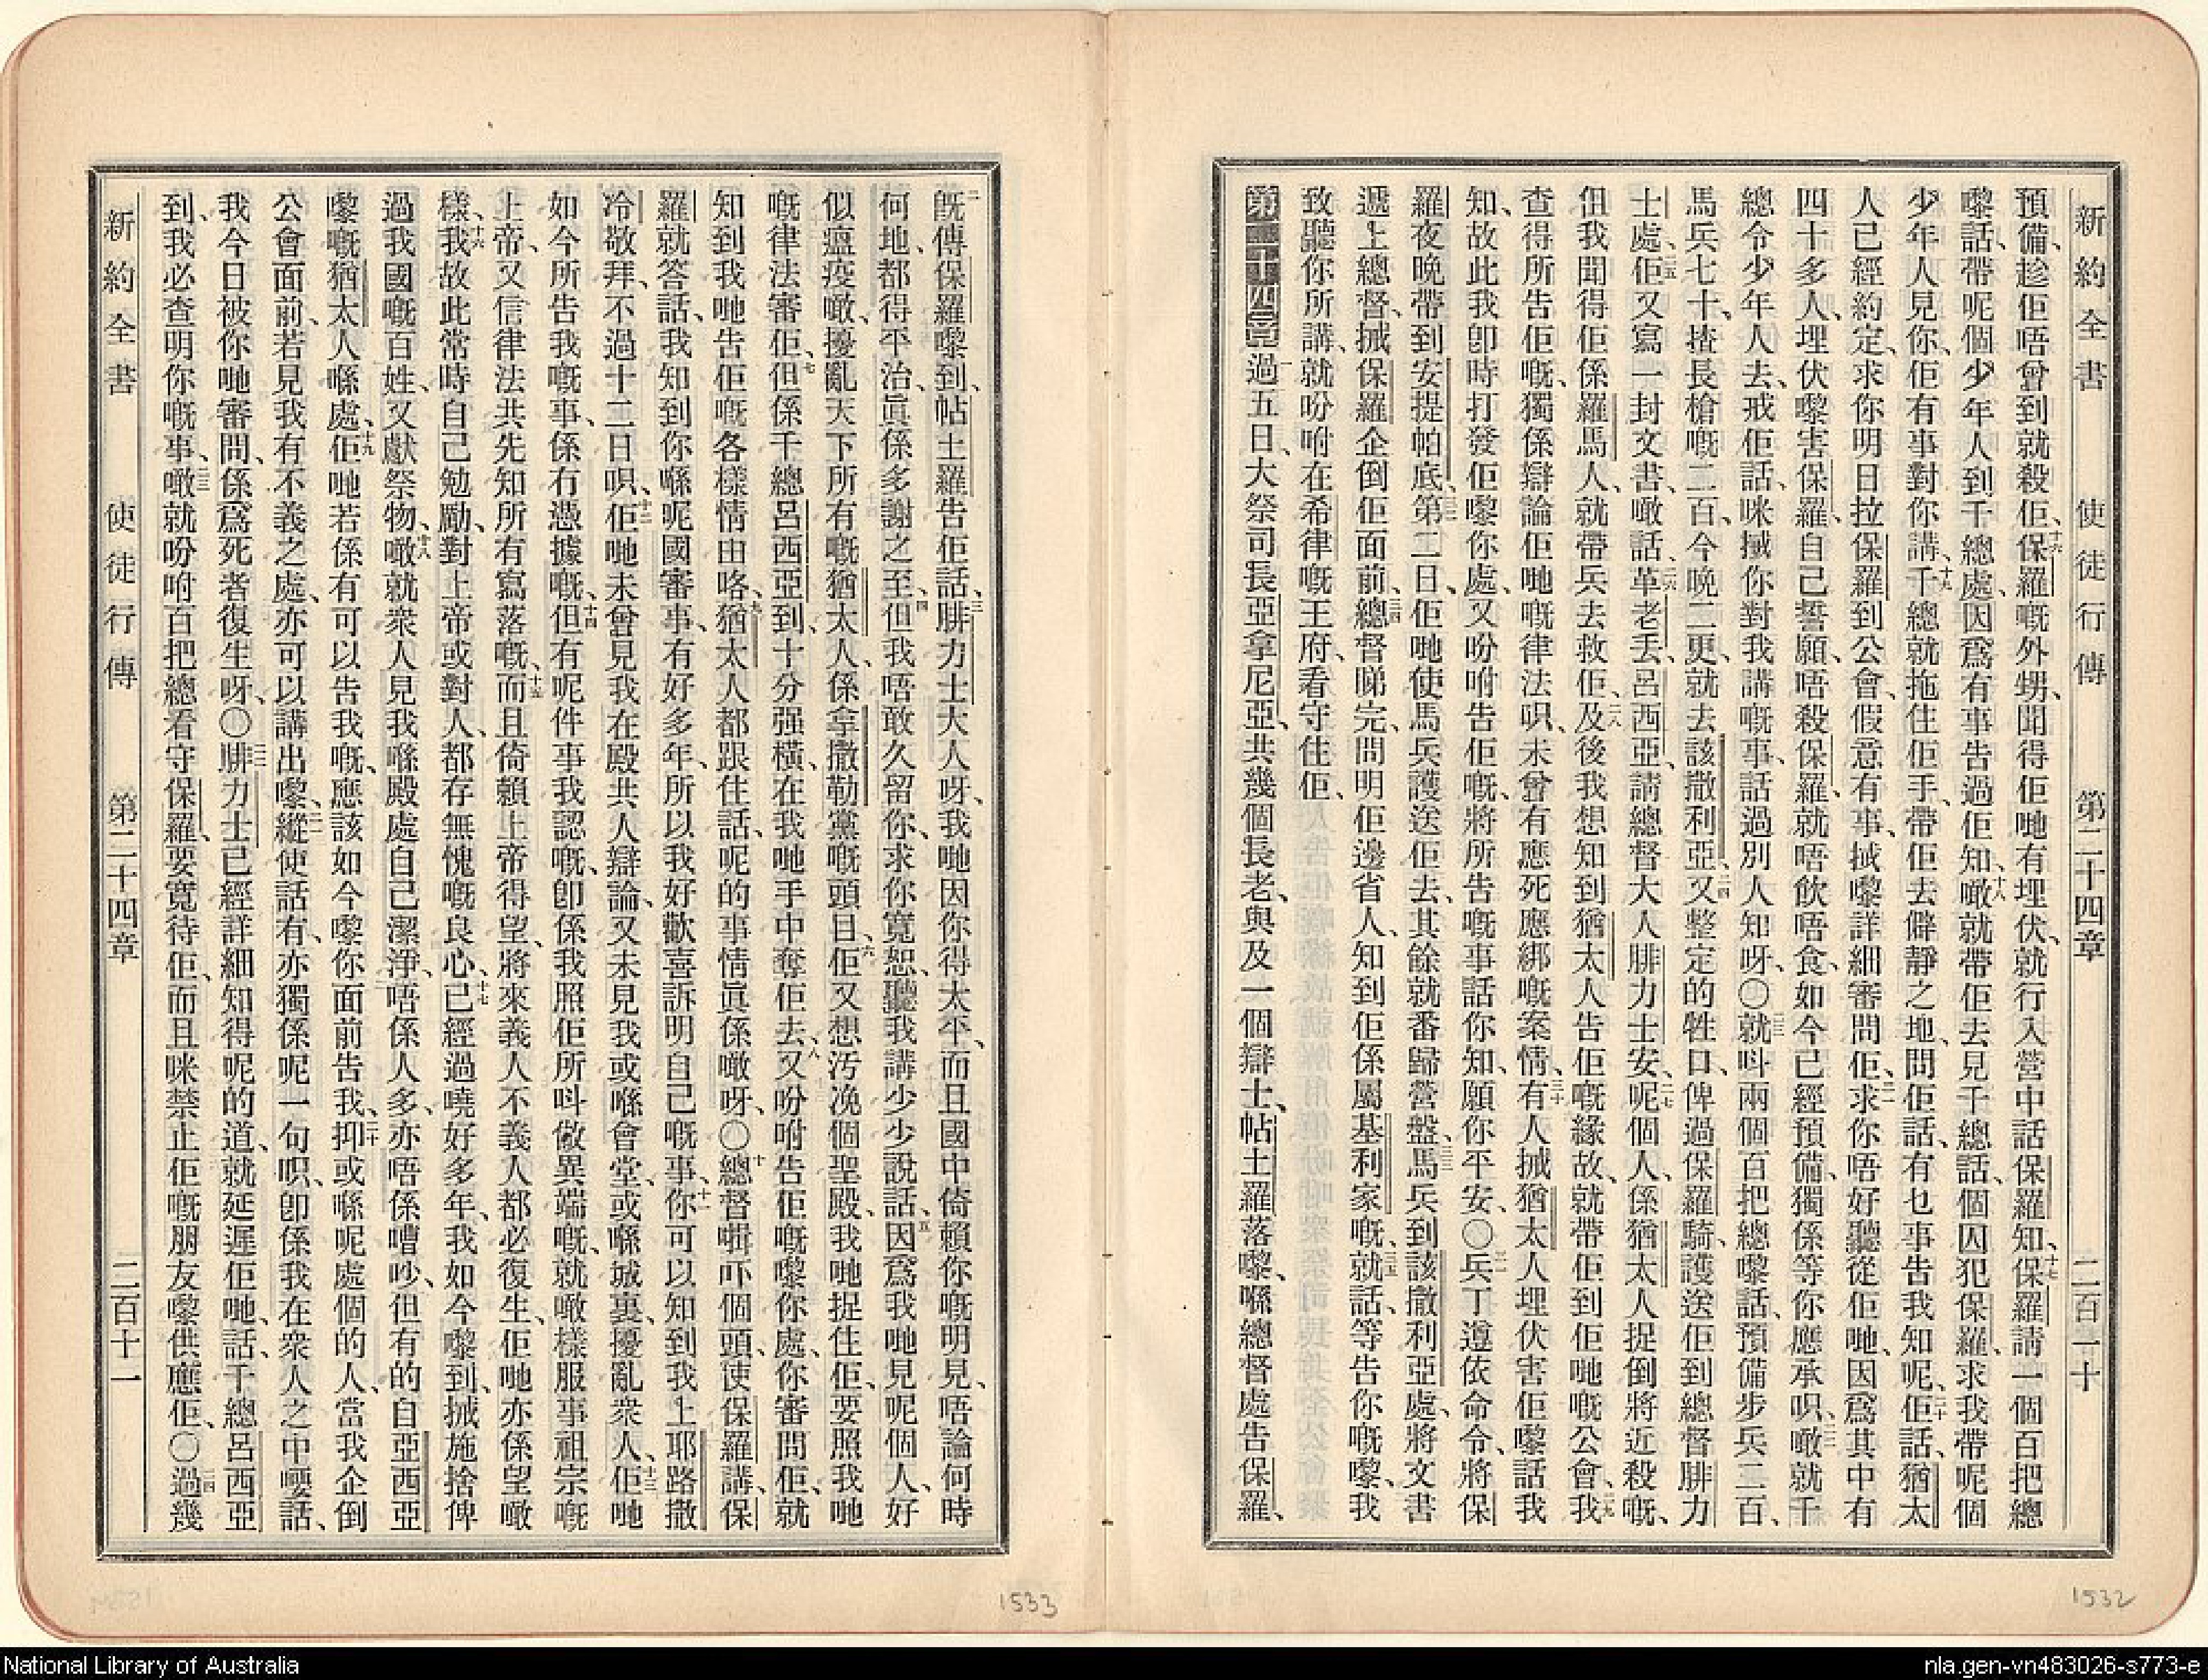 新約全書 使徒行傳 第二十四章 二百一十
預備、趁佢唔曾到就殺佢、十六保羅嘅外甥、聞得佢哋有埋伏、就行入營中話保羅知、十七保羅請一個百把總
嚟話、帶呢個少年人到千總處、因爲有事告過佢知、十八噉就帶佢去見千總話、個囚犯保羅、求我帶呢個
少年人見你、佢有事對你講、十九千總就拖住佢手、帶佢去僻靜之地、問佢話、有乜事告我知呢、二十佢話、猶太
人已經約定、求你明日拉保羅到公會、假意有事、搣嚟詳細審問佢、二一求你唔好聽從佢哋、因爲其中有
四十多人、埋伏嚟害保羅、自己誓願、唔殺保羅、就唔飲唔食、如今已經預備、獨係等你應承呮、二二噉就千
總令少年人去、戒佢話、咪搣你對我講嘅事、話過別人知呀、〇二三就呌兩個百把總嚟話、預備步兵二百、
馬兵七十、揸長槍嘅二百、今晚二更、就去該撒利亞、二四又整定的牲口、俾過保羅騎、護送佢到總督腓力
士處、二五佢又寫一封文書、噉話、二六革老丢呂西亞、請總督大人腓力士安、二七呢個人、係猶太人捉倒將近殺嘅、
伹我聞得佢係羅馬人、就帶兵去救佢、二八及後我想知到猶太人告佢嘅緣故、就帶佢到佢哋嘅公會、二九我
查得所告佢嘅、獨係辯論佢哋嘅律法呮、未曾有應死應綁嘅案情、三十有人搣猶太人埋伏害佢嚟話我
知、故此我卽時打發佢嚟你處、又吩咐告佢嘅、將所告嘅事話你知、願你平安、〇三一兵丁遵依命令、將保
羅夜晚帶到安提帕底、三二第二日、佢哋使馬兵護送佢去、其餘就番歸營盤、三三馬兵到該撒利亞處、將文書
遞上總督、搣保羅企倒佢面前、三四總督睇完、問明佢邊省人、知到佢係屬基利家嘅、三五就話、等告你嘅嚟、我
致聽你所講、就吩咐在希律嘅王府、看守住佢、
第二十四章 一過五日、大祭司長亞拿尼亞、共幾個長老、與及一個辯士、帖土羅落嚟、喺總督處告保羅、
二旣傳保羅嚟到、帖土羅告佢話、三腓力士大人呀、我哋因你得太平、而且國中倚賴你嘅明見、唔論何時
何地、都得平治、眞係多謝之至、四但我唔敢久留你、求你寬恕、聽我講少少說話、五因爲我哋見呢個人、好
似瘟疫噉、擾亂天下所有嘅猶太人、係拿撒勒黨嘅頭目、六佢又想汚浼個聖殿、我哋捉住佢、要照我哋
嘅律法審佢、七但係千總呂西亞到、十分强橫、在我哋手中奪佢去、八又吩咐告佢嘅嚟你處、你審問佢、就
知到我哋告佢嘅各樣情由咯、九猶太人都跟住話、呢的事情眞係噉呀、〇十總督㨆吓個頭、使保羅講、保
羅就答話、我知到你喺呢國審事、有好多年、所以我好歡喜訴明自己嘅事、十一你可以知到我上耶路撒
冷敬拜、不過十二日呮、十二佢哋未曾見我在殿共人辯論、又未見我或喺會堂、或喺城裏、擾亂衆人、十三佢哋
如今所告我嘅事、係冇憑據嘅、十四但有呢件事我認嘅、卽係我照佢所呌做異端嘅、就噉樣服事祖宗嘅
上帝、又信律法共先知所有寫落嘅、十五而且倚賴上帝得望、將來義人不義人都必復生、佢哋亦係望噉
樣、十六我故此常時自己勉勵、對上帝或對人、都存無愧嘅良心、十七已經過曉好多年、我如今嚟到、搣施捨俾
過我國嘅百姓、又獻祭物、十八噉就衆人見我喺殿處自己潔淨、唔係人多、亦唔係嘈吵、但有的自亞西亞
嚟嘅猶太人喺處、十九佢哋若係有可以告我嘅、應該如今嚟你面前告我、二十抑或喺呢處個的人、當我企倒
公會面前、若見我有不義之處、亦可以講出嚟、二一縱使話有、亦獨係呢一句呮、卽係我在衆人之中嗌話、
我今日被你哋審問、係爲死者復生呀、〇二二腓力士已經詳細知得呢的道、就延遲佢哋、話、千總呂西亞
到、我必查明你嘅事、二三噉就吩咐百把總看守保羅、要寬待佢、而且咪禁止佢嘅朋友嚟供應佢、〇二四過幾
新約全書 使徒行傳 第二十四章 二百十一
1533
1532
National Library of Australia
nla.gen-vn483026-s773-e